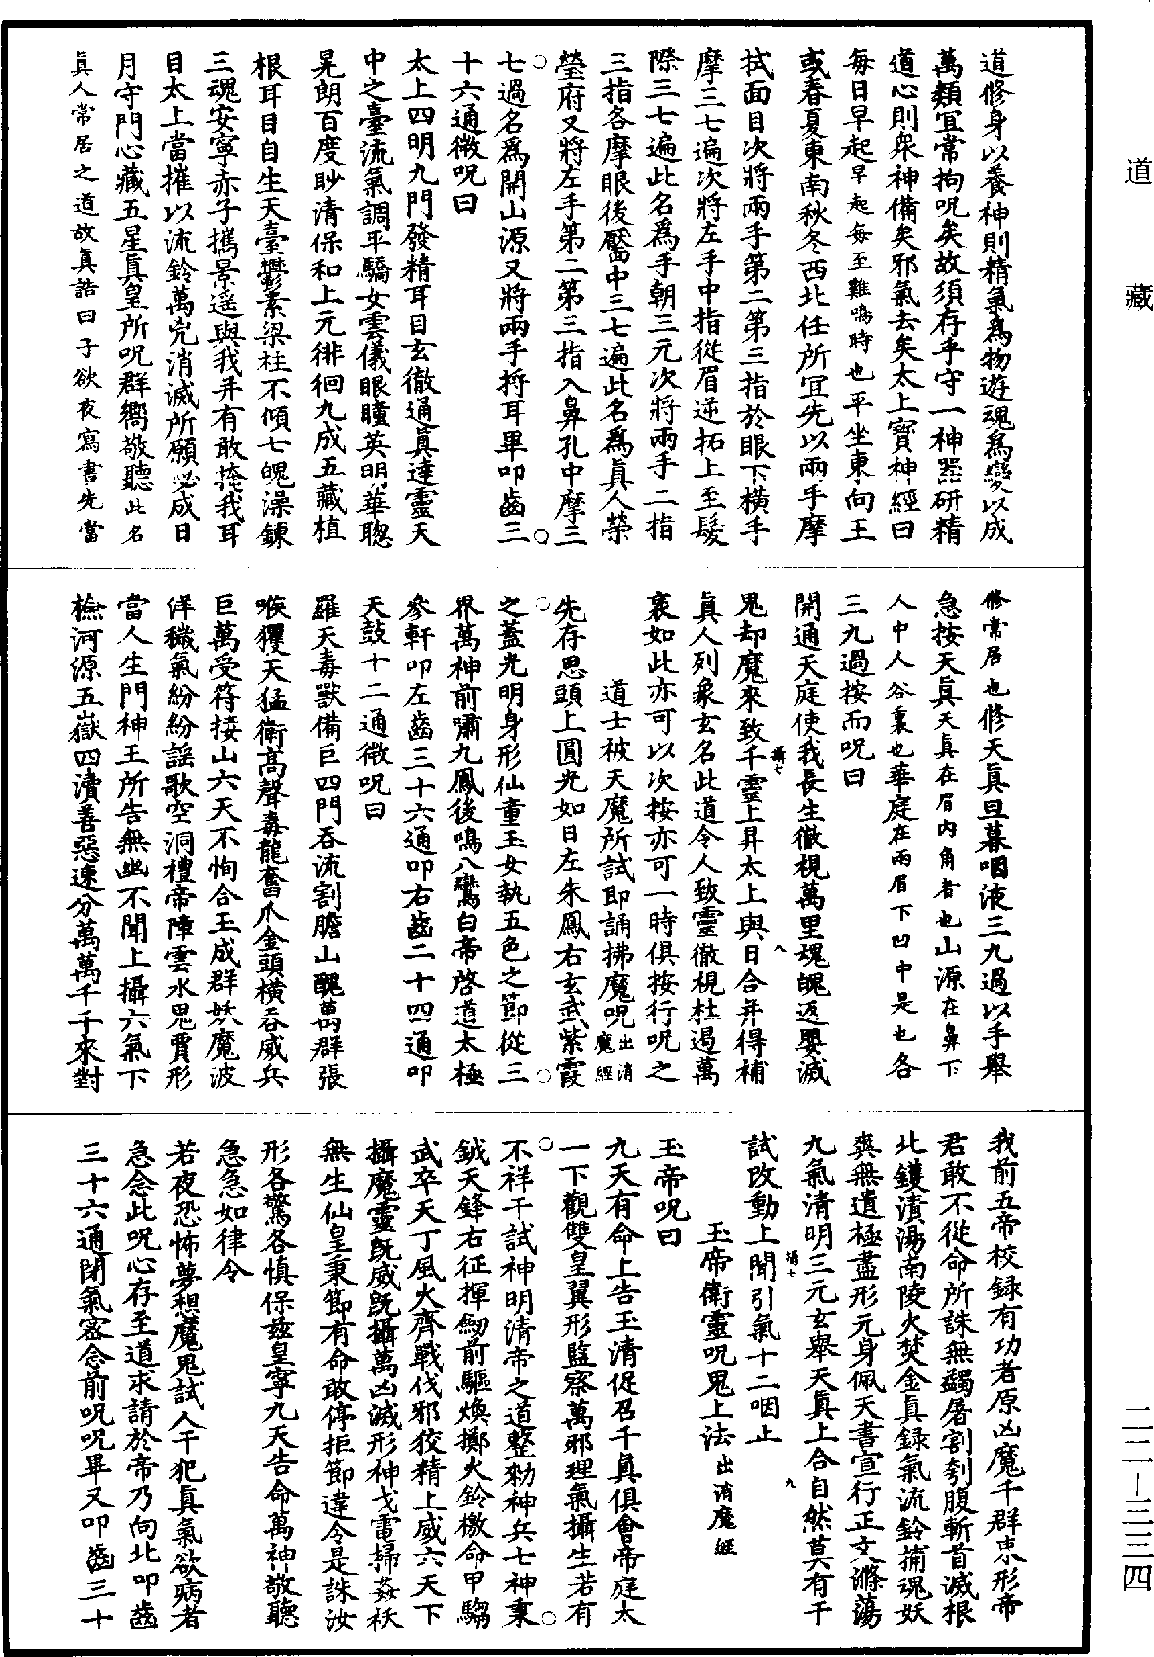 道藏
道修身以養神則精氣為物遊魂為變以成
萬類宜常拘呪矣故須存乎守一神器研精
道心則衆神備矣邪氣去矣太上寶神經曰
每日早起早起每至雞鳴時也平坐東向王
或春夏東南秋冬西北任所宜先以兩手摩
拭面目次將兩手第二第三指於眼下橫手
摩三七遍次將左手中指從眉逆拓上至髮
際三七遍此名為手朝三元次將兩手二指
三指各摩眼後黶中三七遍此名為真人榮
瑩府又將左手第二第三指入鼻孔中摩三
七過名為開山源又將兩手捋耳畢叩齒三
十六通微呪曰
太上四明九門發精耳目玄徹通真達靈天
中之臺流氣調平驕女雲儀眼瞳英明華聦
晃朗百度眇清保和上元徘徊九成五藏植
根耳目自生天臺鬱素梁柱不傾七魄澡鍊
三魂安寧赤子攜景遥與我并有敢掩我耳
目太上當摧以流鈴萬兇消滅所願必成日
月守門心藏五星真皇所呪群嚮敬聽此名
真人常居之道故真誥曰子欲夜寫書先當
修常居也修天真旦暮咽液三九過以手舉
急按天真天真在眉內角者也山源在鼻下
人中人谷裏也華庭在兩眉下凹中是也各
三九過按而呪曰
開通天庭使我長生徹視萬里魂魄返嬰滅
鬼却魔來致千靈上昇太上與日合并得補
真人列象玄名此道令人致靈徹視杜遏萬
衺如此亦可以次按亦可一時俱按行呪之
道士被天魔所試即誦拂魔呪出消魔經
先存思頭上圓光如日左朱鳳右玄武紫霞
之蓋光明身形仙童玉女執五色之節從三
界萬神前嘯九鳳後鳴八鸞白帝啓道太極
參軒叩左齒三十六通叩右齒二十四通叩
天鼓十二通微呪曰
羅天毒獸備巨四門吞流割膽山醜萬群張
喉玃天猛衛高聲毒龍奮爪金頭橫吞威兵
巨萬受符接山六天不恂合玉成群妖魔波
佯穢氣紛紛謡歌空洞禮帝陣雲水鬼賈形
當人生門神王所告無幽不聞上攝六氣下
檢河源五嶽四瀆善惡速分萬萬千千來對
我前五帝校録有功者原凶魔千群束形帝
君敢不從命所誅無蠲屠割刳腹斬首滅根
北鑊漬湯南陵火焚金真録氣流鈴捕魂妖
爽無遺極盡形元身佩天書宣行正文滌蕩
九氣清明三元玄舉天真上合自然莫有干
試改動上聞引氣十二咽止
玉帝衛靈呪鬼上法出消魔經
玉帝呪曰
九天有命上告玉清促召千真俱會帝庭太
一下觀雙皇翼形監察萬邪理氣攝生若有
不祥干試神明清帝之道整勑神兵七神秉
鉞天鋒右征揮劒前驅煥擲火鈴檄命甲騶
武卒天丁風火齊戰伐邪狡精上威六天下
攝魔靈既威既攝萬凶滅形神戈電掃姦祅
無生仙皇秉節有命敢停拒節違令是誅汝
形各驚各慎保兹皇寧九天告命萬神敬聽
急急如律令
若夜恐怖夢想魔鬼試人干犯真氣欲病者
急念此呪心存至道求請於帝乃向北叩齒
三十六通閉氣密念前呪呪畢又叩齒三十
二二－三三四